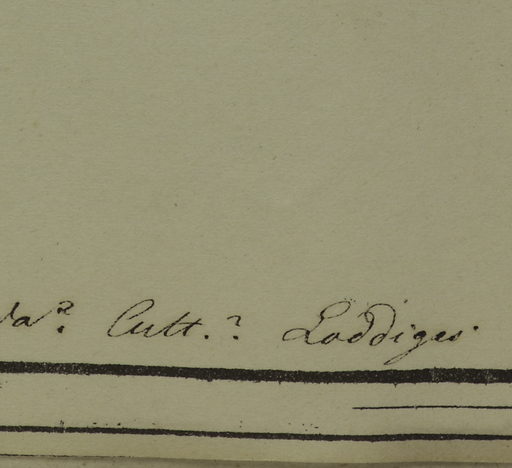 Cult.? Loddiges.